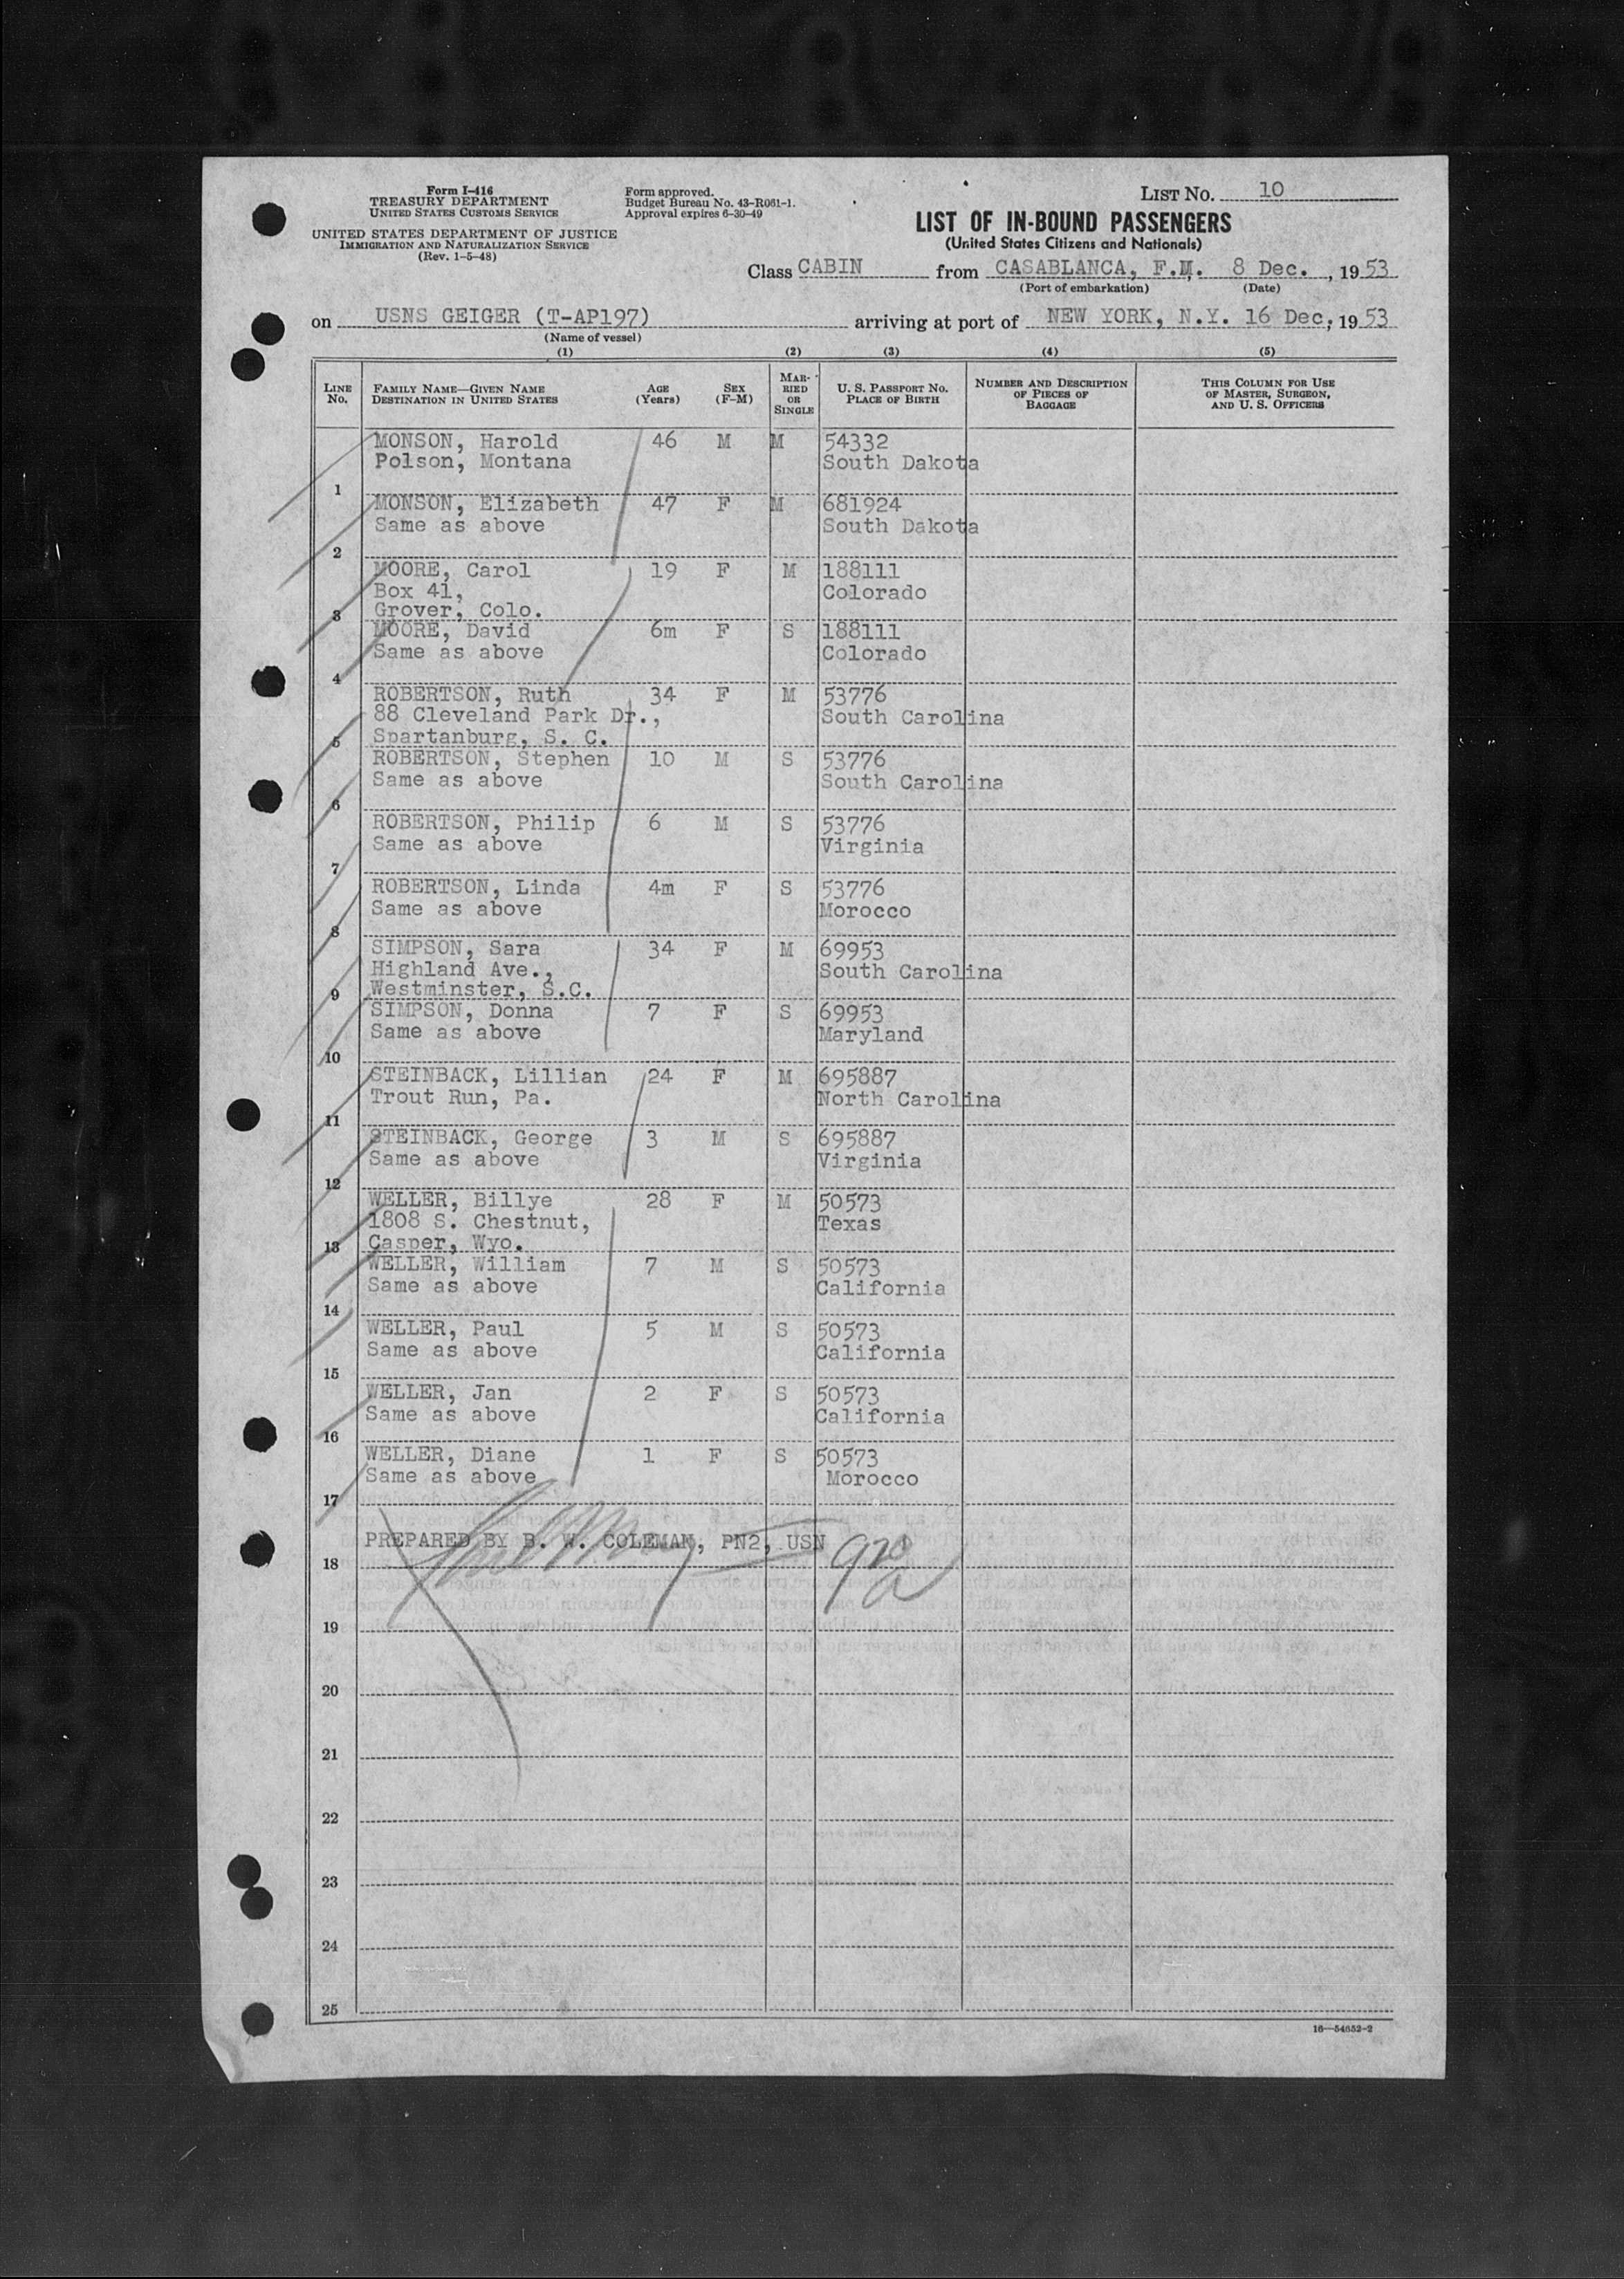 Form I-416
TREASURY DEPARTMENT
UNITED STATES CUSTOMS SERVICE
UNITED STATES DEPARTMENT OF JUSTICE
IMMIGRATION AND NATURALIZATION SERVICE
(Rev. 1-5-48)
Form approved.
Budget Bureau No. 43-R061-1.
Approval expires 6-30-49
LIST No. 10
LIST OF IN-BOUND PASSENGERS
(United States Citizens and Nationals)
Class CABIN from CASABLANCA, F.M. 8 Dec. , 19 53
(Port of embarkation) (Date)
on USNS GEIGER (T-AP197) arriving at port of NEW YORK, N.Y. 16 Dec, 19 53
(Name of vessel)
(1) (2) (3) (4) (5)
LINE No. FAMILY NAME—GIVEN NAME DESTINATION IN UNITED STATES AGE (Years) SEX (F-M) MARRIED OR SINGLE U. S. PASSPORT No. PLACE OF BIRTH NUMBER AND DESCRIPTION OF PIECES OF BAGGAGE THIS COLUMN FOR USE OF MASTER, SURGEON, AND U. S. OFFICERS
MONSON, Harold 46 M M 54332
Polson, Montana South Dakota
1
MONSON, Elizabeth 47 F M 681924
Same as above South Dakota
2
MOORE, Carol 19 F M 188111
Box 41, Colorado
3 Grover, Colo.
MOORE, David 6m F S 188111
Same as above Colorado
4
ROBERTSON, Ruth 34 F M 53776
88 Cleveland Park Dr., South Carolina
5 Spartanburg, S. C.
ROBERTSON, Stephen 10 M S 53776
Same as above South Carolina
6
ROBERTSON, Philip 6 M S 53776
Same as above Virginia
7
ROBERTSON, Linda 4m F S 53776
Same as above Morocco
8
SIMPSON, Sara 34 F M 69953
Highland Ave., South Carolina
9 Westminster, S.C.
SIMPSON, Donna 7 F S 69953
Same as above Maryland
10
STEINBACK, Lillian 24 F M 695887
Trout Run, Pa. North Carolina
11
STEINBACK, George 3 M S 695887
Same as above Virginia
12
WELLER, Billye 28 F M 50573
1808 S. Chestnut, Texas
13 Casper, Wyo.
WELLER, William 7 M S 50573
Same as above California
14
WELLER, Paul 5 M S 50573
Same as above California
15
WELLER, Jan 2 F S 50573
Same as above California
16
WELLER, Diane 1 F S 50573
Same as above Morocco
17
PREPARED BY B. W. COLEMAN, PN2, USN
18
19
20
21
22
23
24
25
16—54652-2